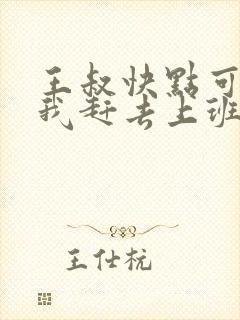 王叔快點可
我赶去上班
王仕杭